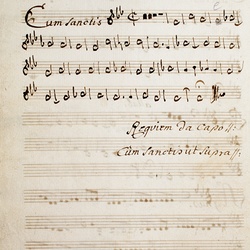 Cum Sanctis
Requiem da Capo
Cum Sanctis ut Supra